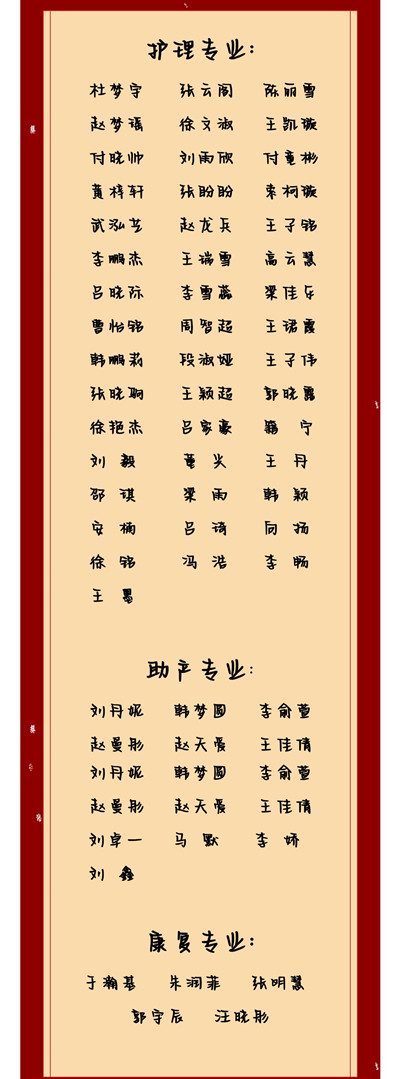 护理专业：
杜梦宇 张云阁 陈丽雪
赵梦瑶 徐文淑 王凯璇
付晓帅 刘雨欣 付童彬
黄梓轩 张盼盼 索柯璇
武泓芝 赵龙兵 王子铭
李鹏杰 王瑞雪 高云慧
吕晓际 李雪蕊 梁佳乐
曹怡铭 周智超 王珺霞
韩鹏莉 段淑娅 王子伟
张晓驹 王颖超 郭晓露
徐艳杰 吕家豪 宁
刘毅 董兴 王丹
邵琪 梁雨 韩颖
安楠 吕琦 向扬
徐铭 冯浩 李畅
王
助产专业：
刘丹妮 韩梦圆 李俞萱
赵曼彤 赵天爱 王佳倩
刘丹妮 韩梦圆 李俞萱
赵曼彤 赵天爱 王佳倩
刘卓一 马默 李娇
刘鑫
康复专业：
于瀚基 朱润菲 张明慧
郭宇辰 汪晓彤